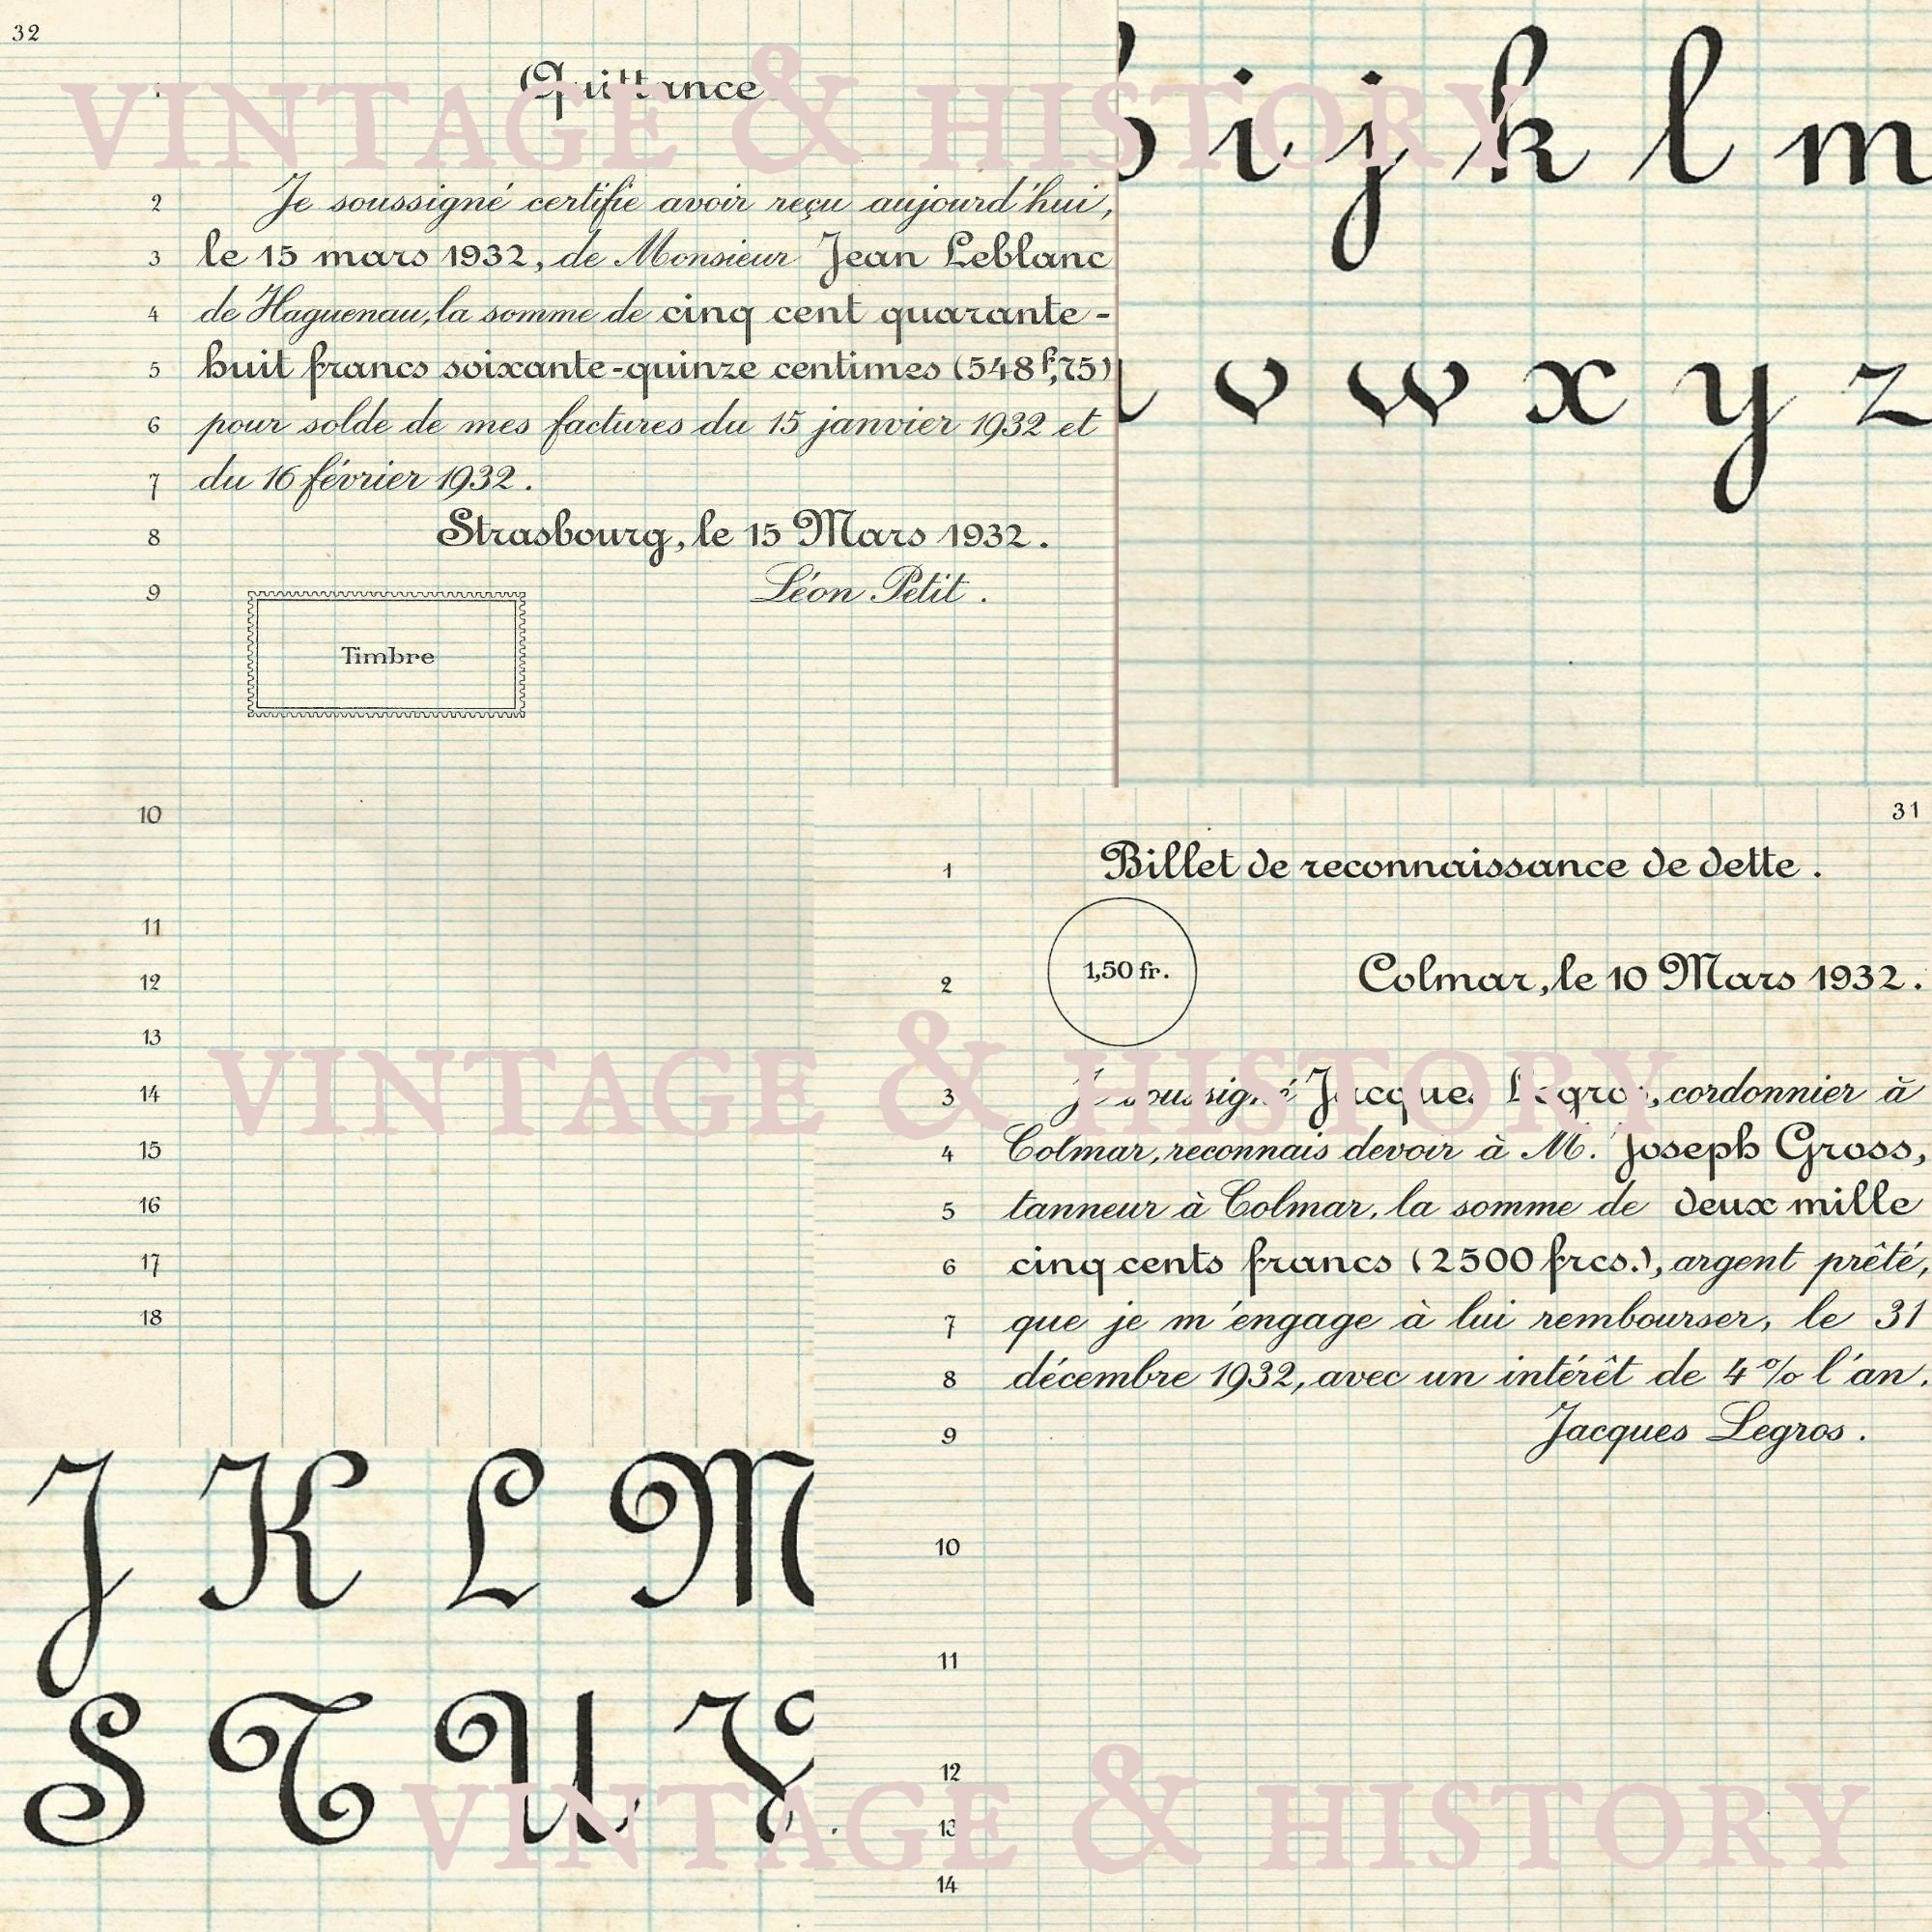 32
Quittance
2 Je soussigné certifie avoir reçu aujourd'hui,
3 le 15 mars 1932, de Monsieur Jean Leblanc
4 de Haguenau, la somme de cinq cent quarante-
5 huit francs soixante-quinze centimes (548f,75)
6 pour solde de mes factures du 15 janvier 1932 et
7 du 16 février 1932.
8 Strasbourg, le 15 Mars 1932.
9 Léon Petit.
Timbre
10
11
12
13
14
15
16
17
18
i j k l m
v w x y z
31
1 Billet de reconnaissance de dette.
1,50 fr.
2 Colmar, le 10 Mars 1932.
3 Je soussigné Jacques Legros, cordonnier à
4 Colmar, reconnais devoir à M. Joseph Gross,
5 tanneur à Colmar, la somme de deux mille
6 cinq cents francs (2500 frcs.), argent prêté,
7 que je m'engage à lui rembourser, le 31
8 décembre 1932, avec un intérêt de 4% l'an.
9 Jacques Legros.
10
11
12
13
14
J K L M
S T U V
VINTAGE & HISTORY
VINTAGE & HISTORY
VINTAGE & HISTORY